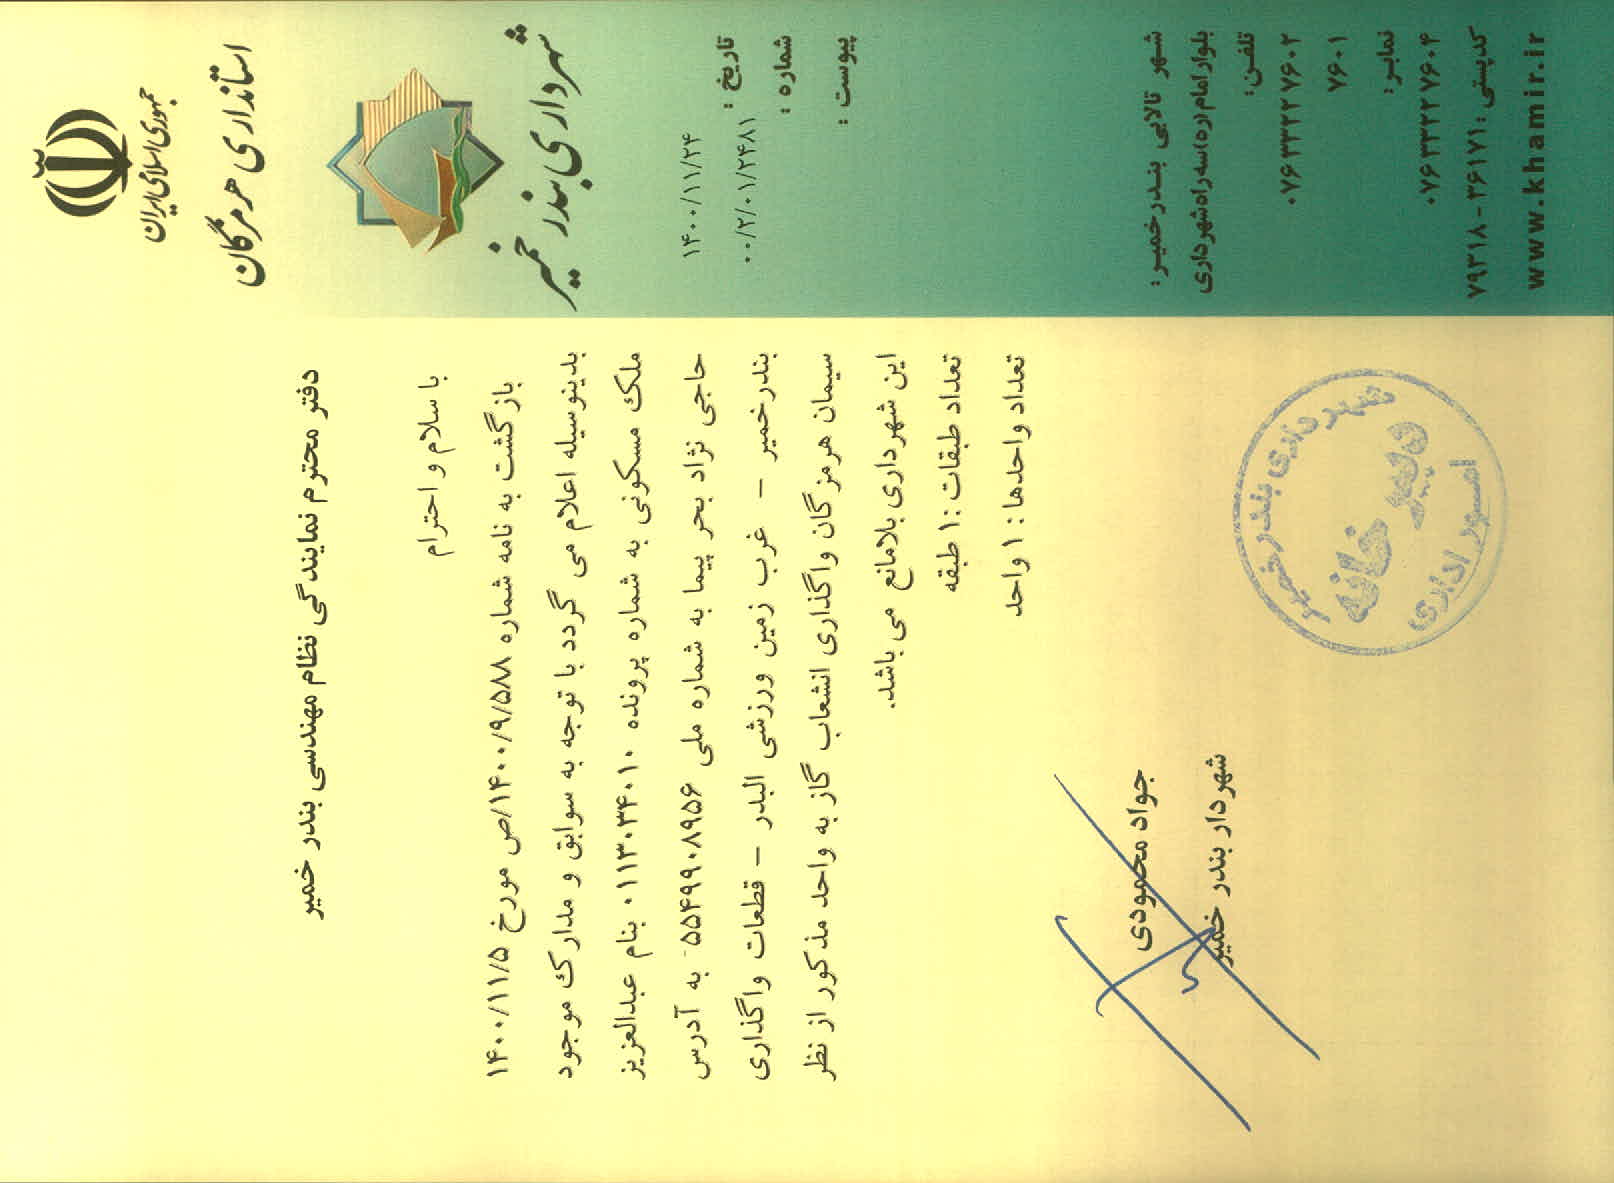 جمهوری اسلامی ایران
استانداری هرمزگان
شهرداری بندر خمیر
تاریخ : ۱۴۰۰/۱۱/۲۴
شماره : ۰۰/۲/۰۱/۲۴۸۱
پیوست :
دفتر محترم نمایندگی نظام مهندسی بندر خمیر
با سلام و احترام
بازگشت به نامه شماره ۱۴۰۰/۹/۵۸۸/ص مورخ ۱۴۰۰/۱۱/۵
بدینوسیله اعلام می گردد با توجه به سوابق و مدارک موجود
ملک مسکونی به شماره پرونده ۰۱۱۳۰۳۴۰۱۰ بنام عبدالعزیز
حاجی نژاد بحر پیما به شماره ملی ۵۵۴۹۹۰۸۹۵۶ به آدرس
بندرخمیر - غرب زمین ورزشی البدر - قطعات واگذاری
سیمان هرمزگان واگذاری انشعاب گاز به واحد مذکور از نظر
این شهرداری بلامانع می باشد.
تعداد طبقات :۱ طبقه
تعداد واحدها : ۱ واحد
جواد محمودی
شهردار بندر خمیر
شهرداری بندر خمیر
دبیرخانه
امور اداری
شهر تالابی بندرخمیر :
بلوار امام (ره) سه راه شهرداری
تلفن:
۰۷۶۳۳۲۲۷۶۰۲
۷۶۰۱
نمابر:
۰۷۶۳۳۲۲۷۶۰۴
کدپستی: ۳۶۱۷۱-۷۹۳۱۸
www.khamir.ir